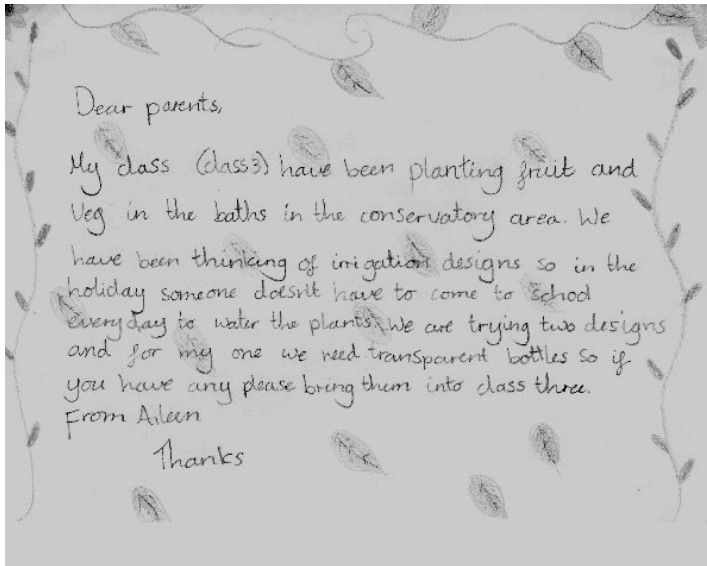 Dear parents,
My class (class3) have been planting fruit and
Veg in the baths in the conservatory area. We
have been thinking of irrigation designs so in the
holiday someone doesn't have to come to school
everyday to water the plants. We are trying two designs
and for my one we need transparent bottles so if
you have any please bring them into class three.
From Aileen
Thanks